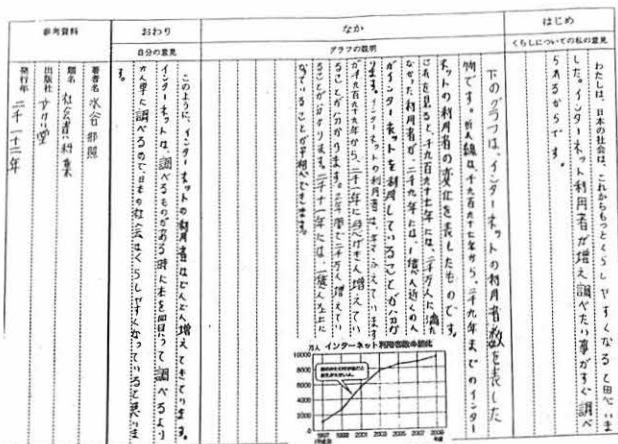 はじめ
くらしについての私の意見
わたしは、日本の社会は、これからもっとくらしやすくなると思いま
した。インターネット利用者が増え調べたい事がすぐ調べ
られるからです。
なか
グラフの説明
下のグラフは、インターネットの利用者数を表した
物です。折れ線は、千九百九十七年から、二千九年までのインター
ネットの利用者の変化を表したものです。
これを見ると、千九百九十七年には、二千万人に満た
なかった利用者が、二千九年には、一億人近くの人
がインターネットを利用していることが分か
ります。インターネットの利用者は、年々ふえています
が千九百九十九年から、二千一年に急げきに増えてい
ることが分かります。二年間で二千万人増えてい
ることが分かります。二千十一年には、一億人以上に
なっていることが予想できます。
万人 インターネット利用者数の変化
10000
8000
6000
4000
2000
0
1997
1999
2001
2003
2005
2007
2009
年度
おわり
自分の意見
このように、インターネットの利用者はどんどん増えてきています。
インターネットは、調べるものがある時に本を買って調べるより
かん単に調べるので、日本の社会はくらしやすくなっていると思いま
す。
参考資料
著者名 水谷邦照
題名 社会資料集
出版社
発行年 二千一十二年